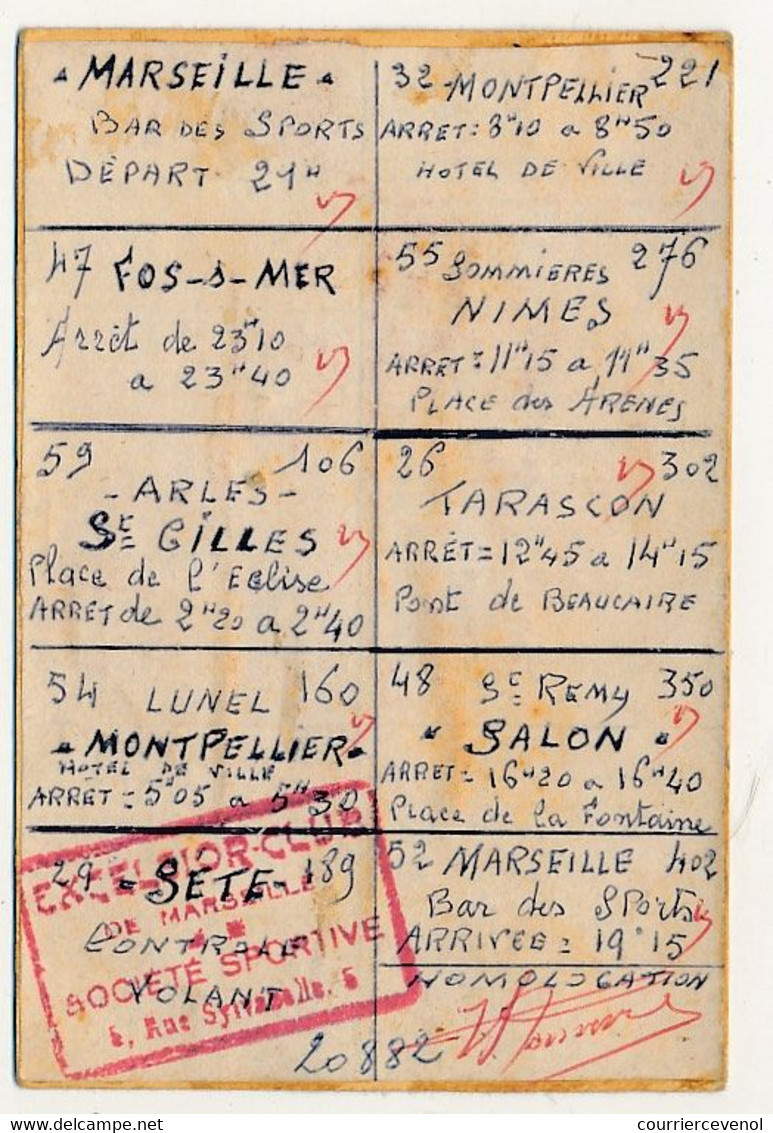 MARSEILLE
BAR DES SPORTS
DÉPART 21H
47 FOS-S-MER
Arrêt de 23H10
a 23H40
59 106
- ARLES -
St GILLES
Place de l'Eglise
ARRET de 2H20 a 2H40
54 LUNEL 160
MONTPELLIER
HOTEL DE VILLE
ARRET = 5H05 a 5H30
29 - SÈTE - 189
CONTROLE
VOLANT
EXCELSIOR-CLUB
DE MARSEILLE
SOCIÉTÉ SPORTIVE
5, Rue Sylvabelle, 5
32 MONTPELLIER 221
ARRET = 8H10 a 8H50
HOTEL DE VILLE
55 SOMMIERES 276
NIMES
ARRET = 11H15 a 11H35
PLACE des ARENES
26 302
TARASCON
ARRÊT = 12H45 a 14H15
Pont de BEAUCAIRE
48 St REMY 350
SALON
ARRET = 16H20 a 16H40
Place de la Fontaine
52 MARSEILLE 402
Bar des SPorts
ARRIVEE = 19H15
HOMOLOGATION
20882
courriercevenol